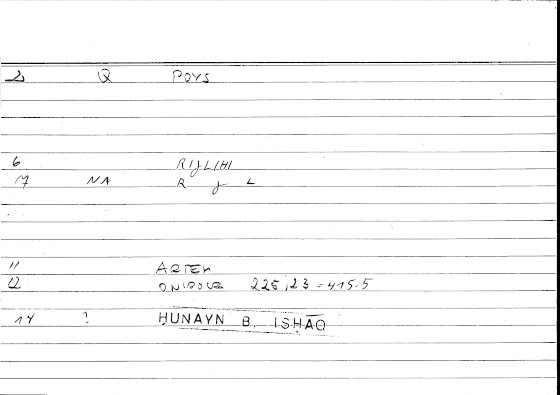 2 Q POYS
6 RIJLIHI
17 NA R J L
11 ARTEM
12 ONIROCR 225,23 = 415.5
14 ? ḤUNAYN B. ISḤĀQ